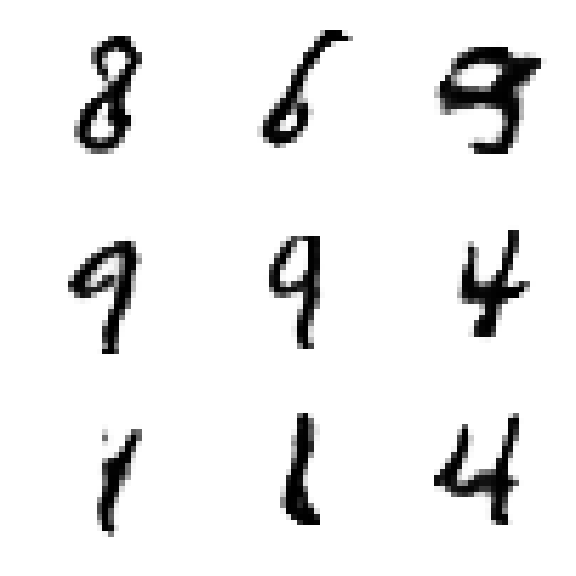 8 6 9
9 9 4
1 1 4